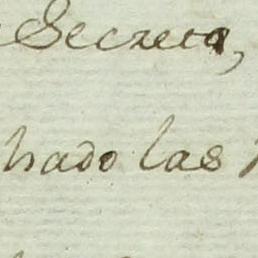 Secreta,
hado las